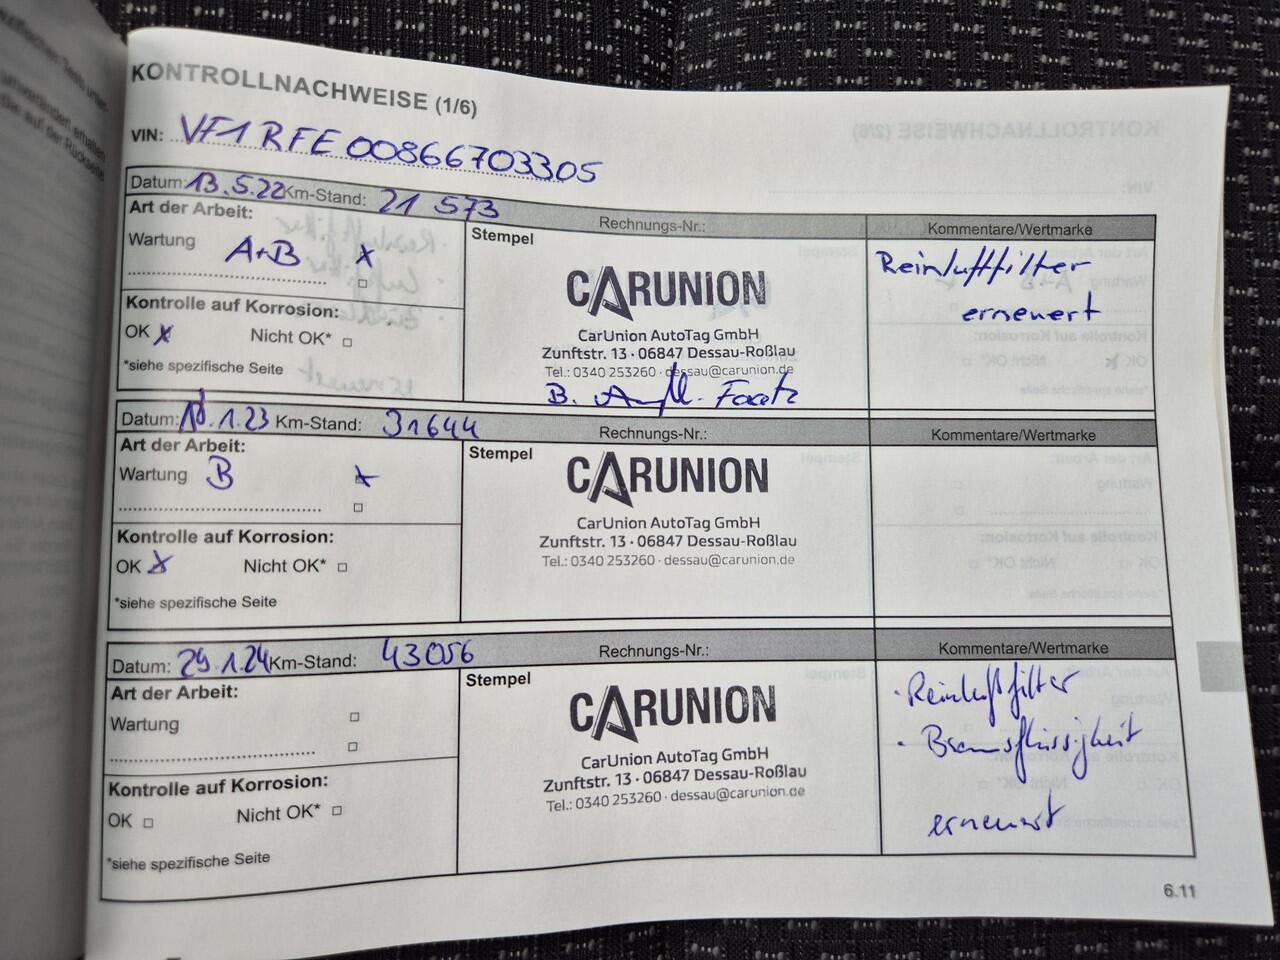 KONTROLLNACHWEISE (1/6)
VIN: VF1RFE00866703305
Datum: 13.5.22 Km-Stand: 21 573 Rechnungs-Nr.: Kommentare/Wertmarke
Art der Arbeit:
Wartung A+B x
Kontrolle auf Korrosion:
OK x Nicht OK*
*siehe spezifische Seite
Stempel
CARUNION
CarUnion AutoTag GmbH
Zunftstr. 13 · 06847 Dessau-Roßlau
Tel.: 0340 253260 · dessau@carunion.de
Reinluftfilter
erneuert
Datum: .1.23 Km-Stand: 31644 Rechnungs-Nr.: Kommentare/Wertmarke
Art der Arbeit:
Wartung B x
Kontrolle auf Korrosion:
OK x Nicht OK*
*siehe spezifische Seite
Stempel
CARUNION
CarUnion AutoTag GmbH
Zunftstr. 13 · 06847 Dessau-Roßlau
Tel.: 0340 253260 · dessau@carunion.de
Datum: 29.1.24 Km-Stand: 43056 Rechnungs-Nr.: Kommentare/Wertmarke
Art der Arbeit:
Wartung
Kontrolle auf Korrosion:
OK Nicht OK*
*siehe spezifische Seite
Stempel
CARUNION
CarUnion AutoTag GmbH
Zunftstr. 13 · 06847 Dessau-Roßlau
Tel.: 0340 253260 · dessau@carunion.de
· Reinluftfilter
· Bremsflüssigkeit
erneuert
6.11